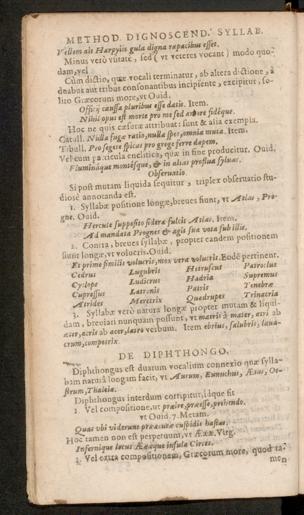 METHOD. DIGNOSCEND. SYLLAB.
Vellem ait Harpyiis gula digna rapacibus esset.
Minus verò vsitatè, sed (vt veteres vocant) modo quodam, vel
Cùm dictio, quæ vocali terminatur, ab altera dictione, à
duabus aut tribus consonantibus incipiente, excipitur, solito
Græcorum more, vt Ouid.
Officij caussa pluribus esse datis. Item.
Nihil opus est morte pro me sed amore fidéque.
Hoc ne quis cæsuræ attribuat: sunt & alia exempla.
Catull. Nulla fugæ ratio, nulla spes, omnia muta. Item.
Tibull. Pro segete spicas pro grege ferre dapem.
Vel cum particula enclitica, quæ in fine producitur. Ouid.
Fluminàque montésque, & in alias proflua syluas.
Obseruatio.
Si post mutam liquida sequitur, triplex obseruatio studiosè
annotanda est.
1. Syllabæ positione longæ, breues sunt, vt Atlas, Progne.
Ouid.
Hercule supposito sidera fulcit Atlas. Item.
Ad mandata Prognes & agis sua vota sub illis.
2. Contra, breues syllabæ, propter eandem positionem
sunt longæ, vt volucris. Ouid.
Et primo similis volucri, mox vera volucris. Eodē pertinent.
Cedrus Lugubris Hetruscus Patroclus
Cyclops Ludicrus Hadria Supremus
Cupressus Latrinis Patris Tenebræ
Atrides Meretrix Quadrupes Trinacria
3. Syllabæ verò natura longæ propter mutam & liquidam,
breuiari nunquam possunt, vt matris à mater, atri ab
ater, acris ab acer, latro verbum. Item ebrius, salubris, lauacrum,
compotrix
DE DIPHTHONGO.
Diphthongus est duarum vocalium connexio quæ syllabam
natura longam facit, vt Aurum, Eunuchus, Æsus, Oestrum,
Thaleia.
Diphthongus interdum corripitur, idque fit
1. Vel compositione, vt præire, præesse, prehendo.
vt Ouid. 7. Metam.
Quos vbi viderunt præacutæ cuspidis hastas.
Hoc tamen non est perpetuum, vt Ææa. Virg.
Infernique lacus Ææaque insula Circes.
2. Vel extra compositionem, Græcorum more, quod ta-
men